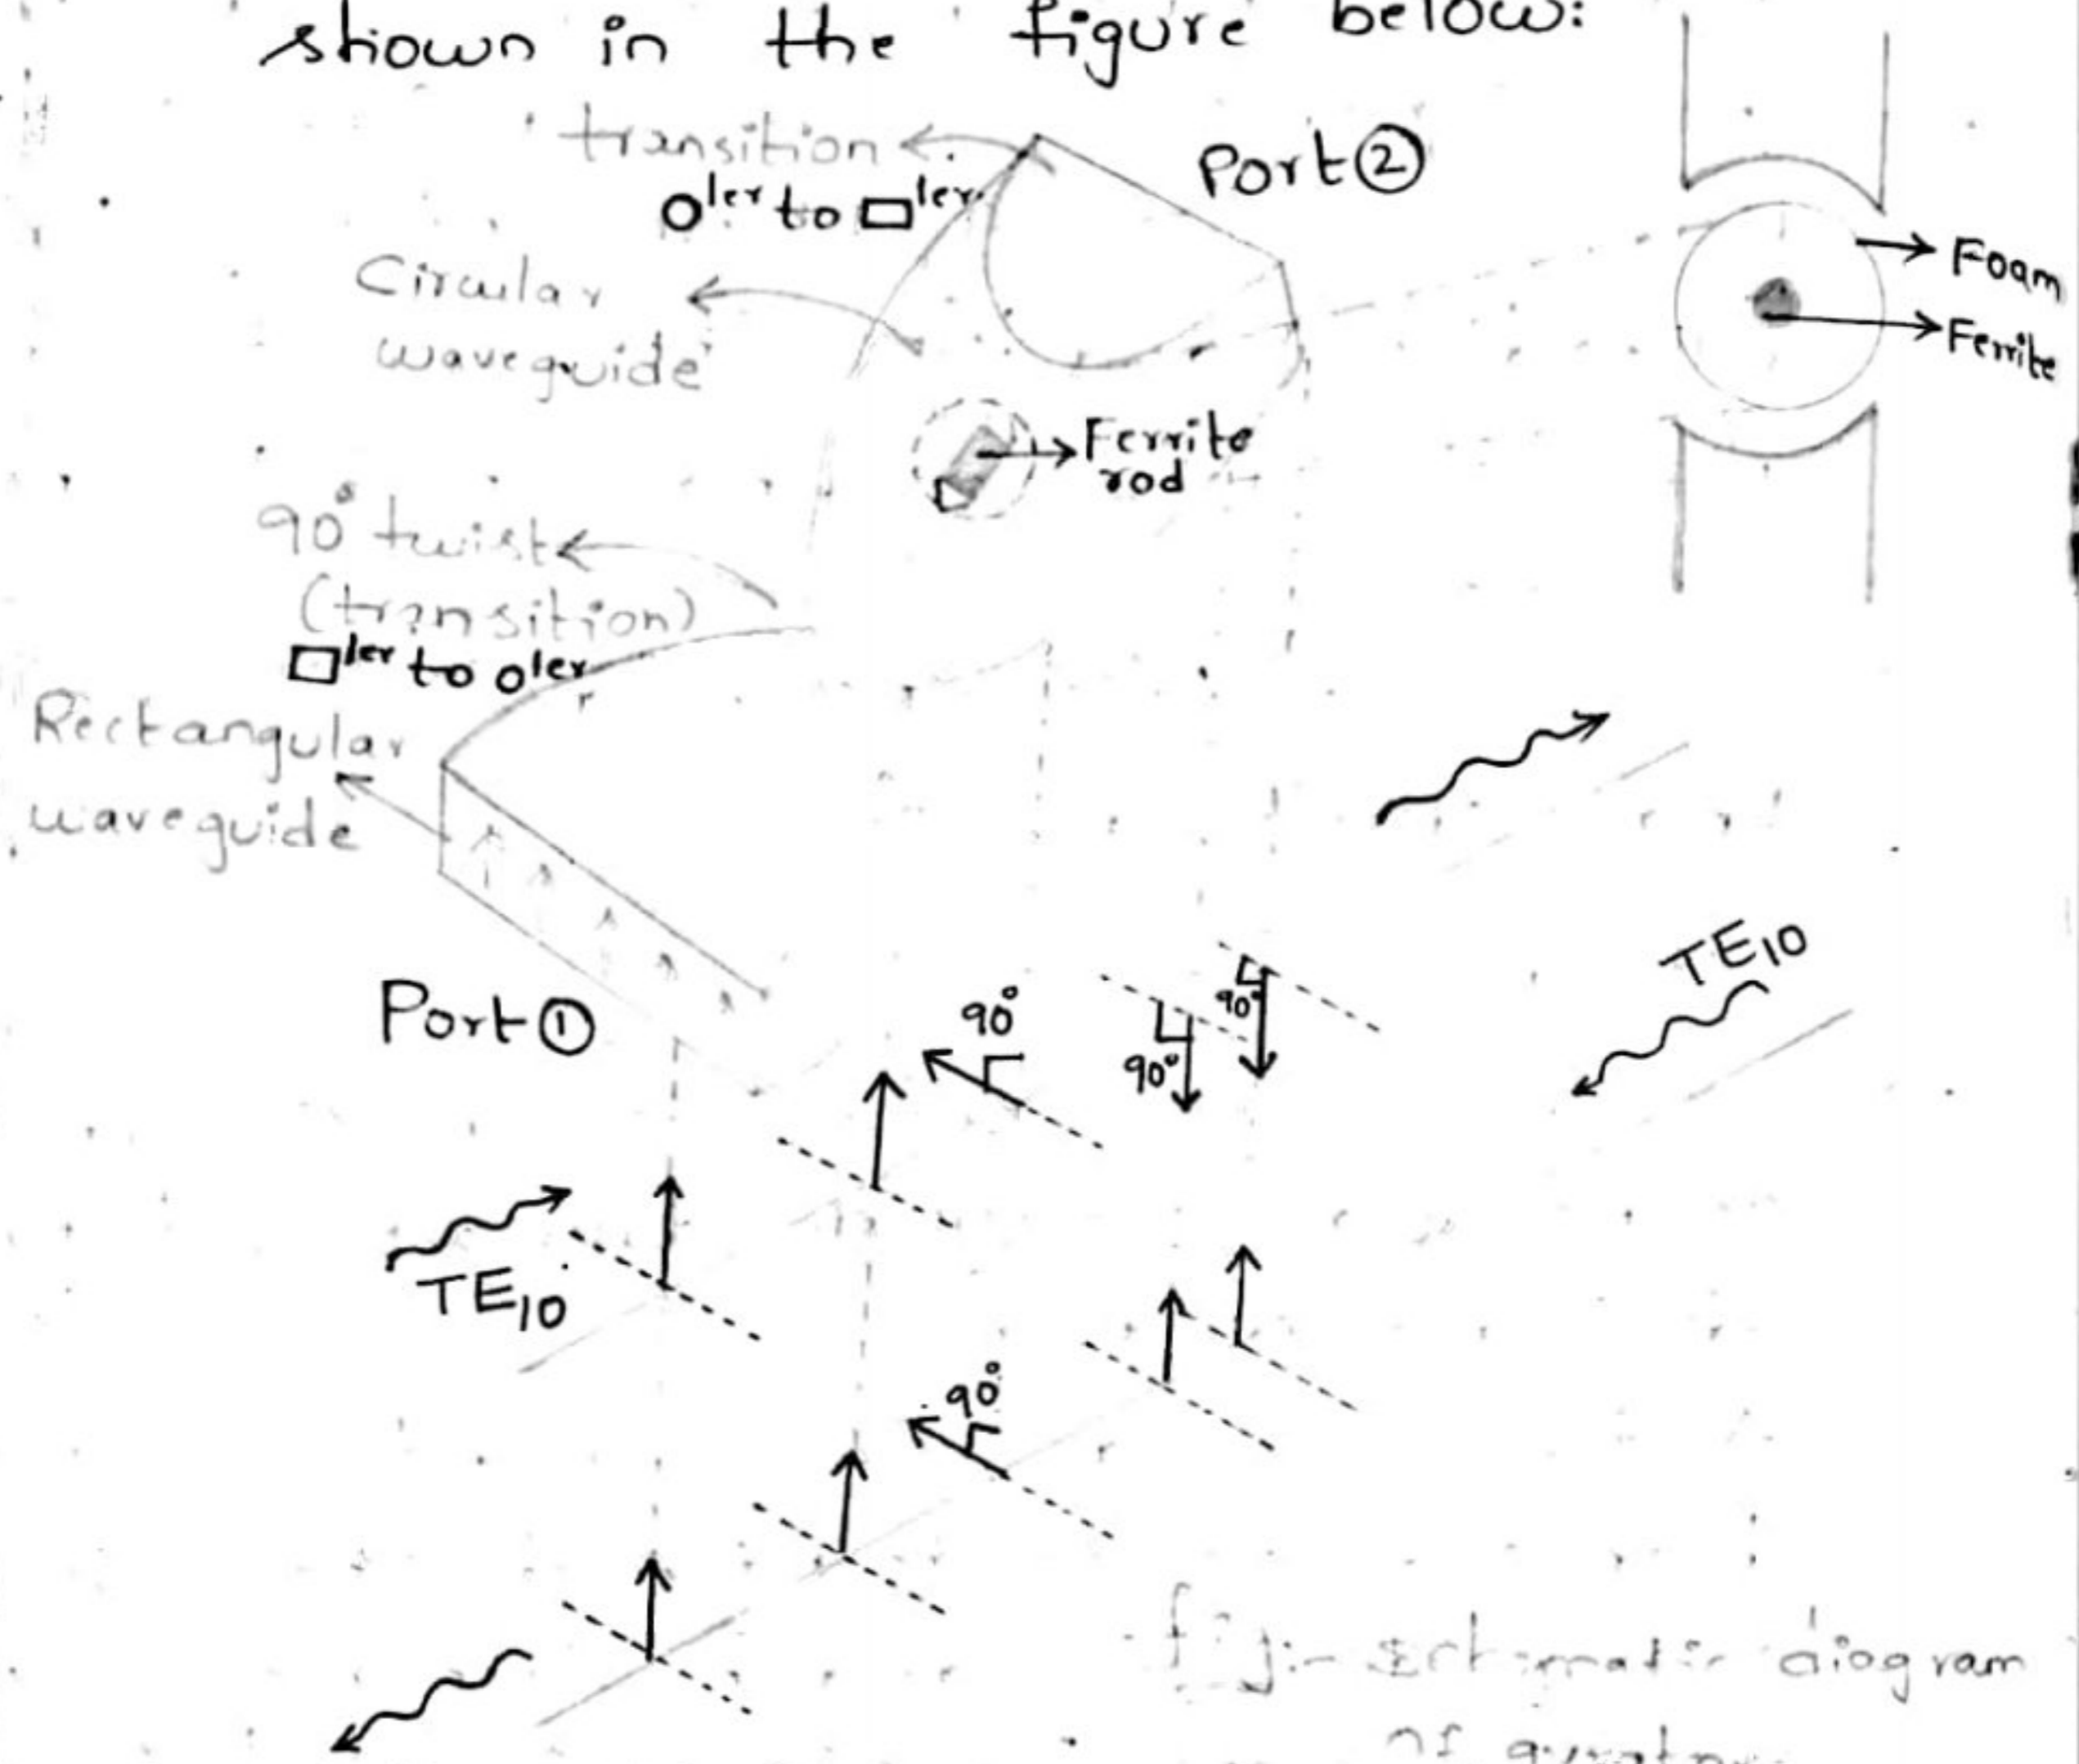 shown in the figure below:
transition
Port ②
O^ler to ▭^ler
Circular
waveguide
Foam
Ferrite
Ferrite
rod
90° twist
(transition)
▭^ler to O^ler
Rectangular
waveguide
Port ①
TE10
90°
90°
90°
TE10
90°
fig:- Schematic diagram
of gyrator